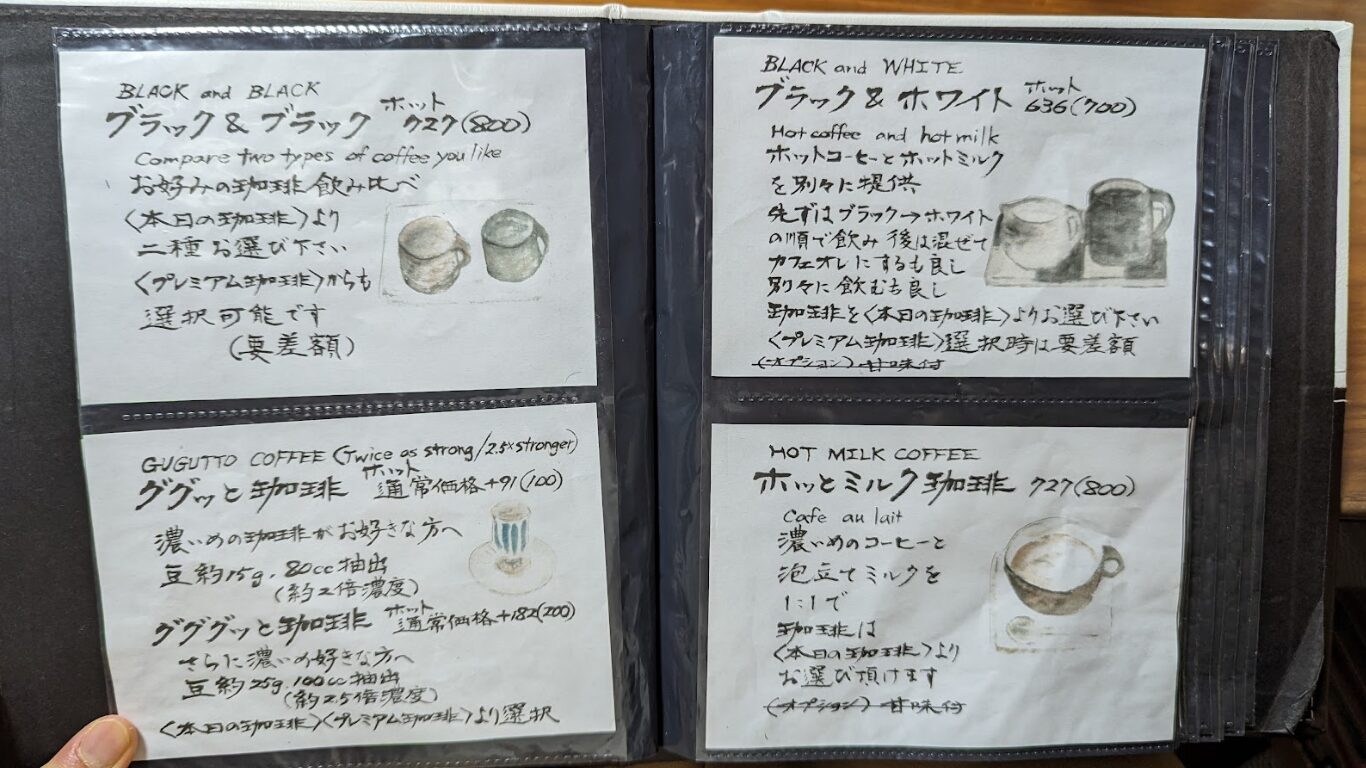 BLACK and BLACK
ブラック & ブラック ホット 727(800)
Compare two types of coffee you like
お好みの珈琲飲み比べ
〈本日の珈琲〉より
二種お選び下さい
〈プレミアム珈琲〉からも
選択可能です
(要差額)
GUGUTTO COFFEE (Twice as strong/2.5×stronger)
ググッと珈琲 ホット 通常価格+91(100)
濃いめの珈琲がお好きな方へ
豆約15g.80cc抽出
(約2倍濃度)
グググッと珈琲 ホット 通常価格+182(200)
さらに濃いめ好きな方へ
豆約25g.100cc抽出
(約2.5倍濃度)
〈本日の珈琲〉〈プレミアム珈琲〉より選択
BLACK and WHITE
ブラック & ホワイト ホット 636(700)
Hot coffee and hot milk
ホットコーヒーとホットミルク
を別々に提供
先ずはブラック→ホワイト
の順で飲み 後は混ぜて
カフェオレにするも良し
別々に飲むも良し
珈琲を〈本日の珈琲〉よりお選び下さい
〈プレミアム珈琲〉選択時は要差額
(オプション) 甘味付
HOT MILK COFFEE
ホッとミルク珈琲 727(800)
Cafe au lait
濃いめのコーヒーと
泡立てミルクを
1:1で
珈琲は
〈本日の珈琲〉より
お選び頂けます
(オプション) 甘味付